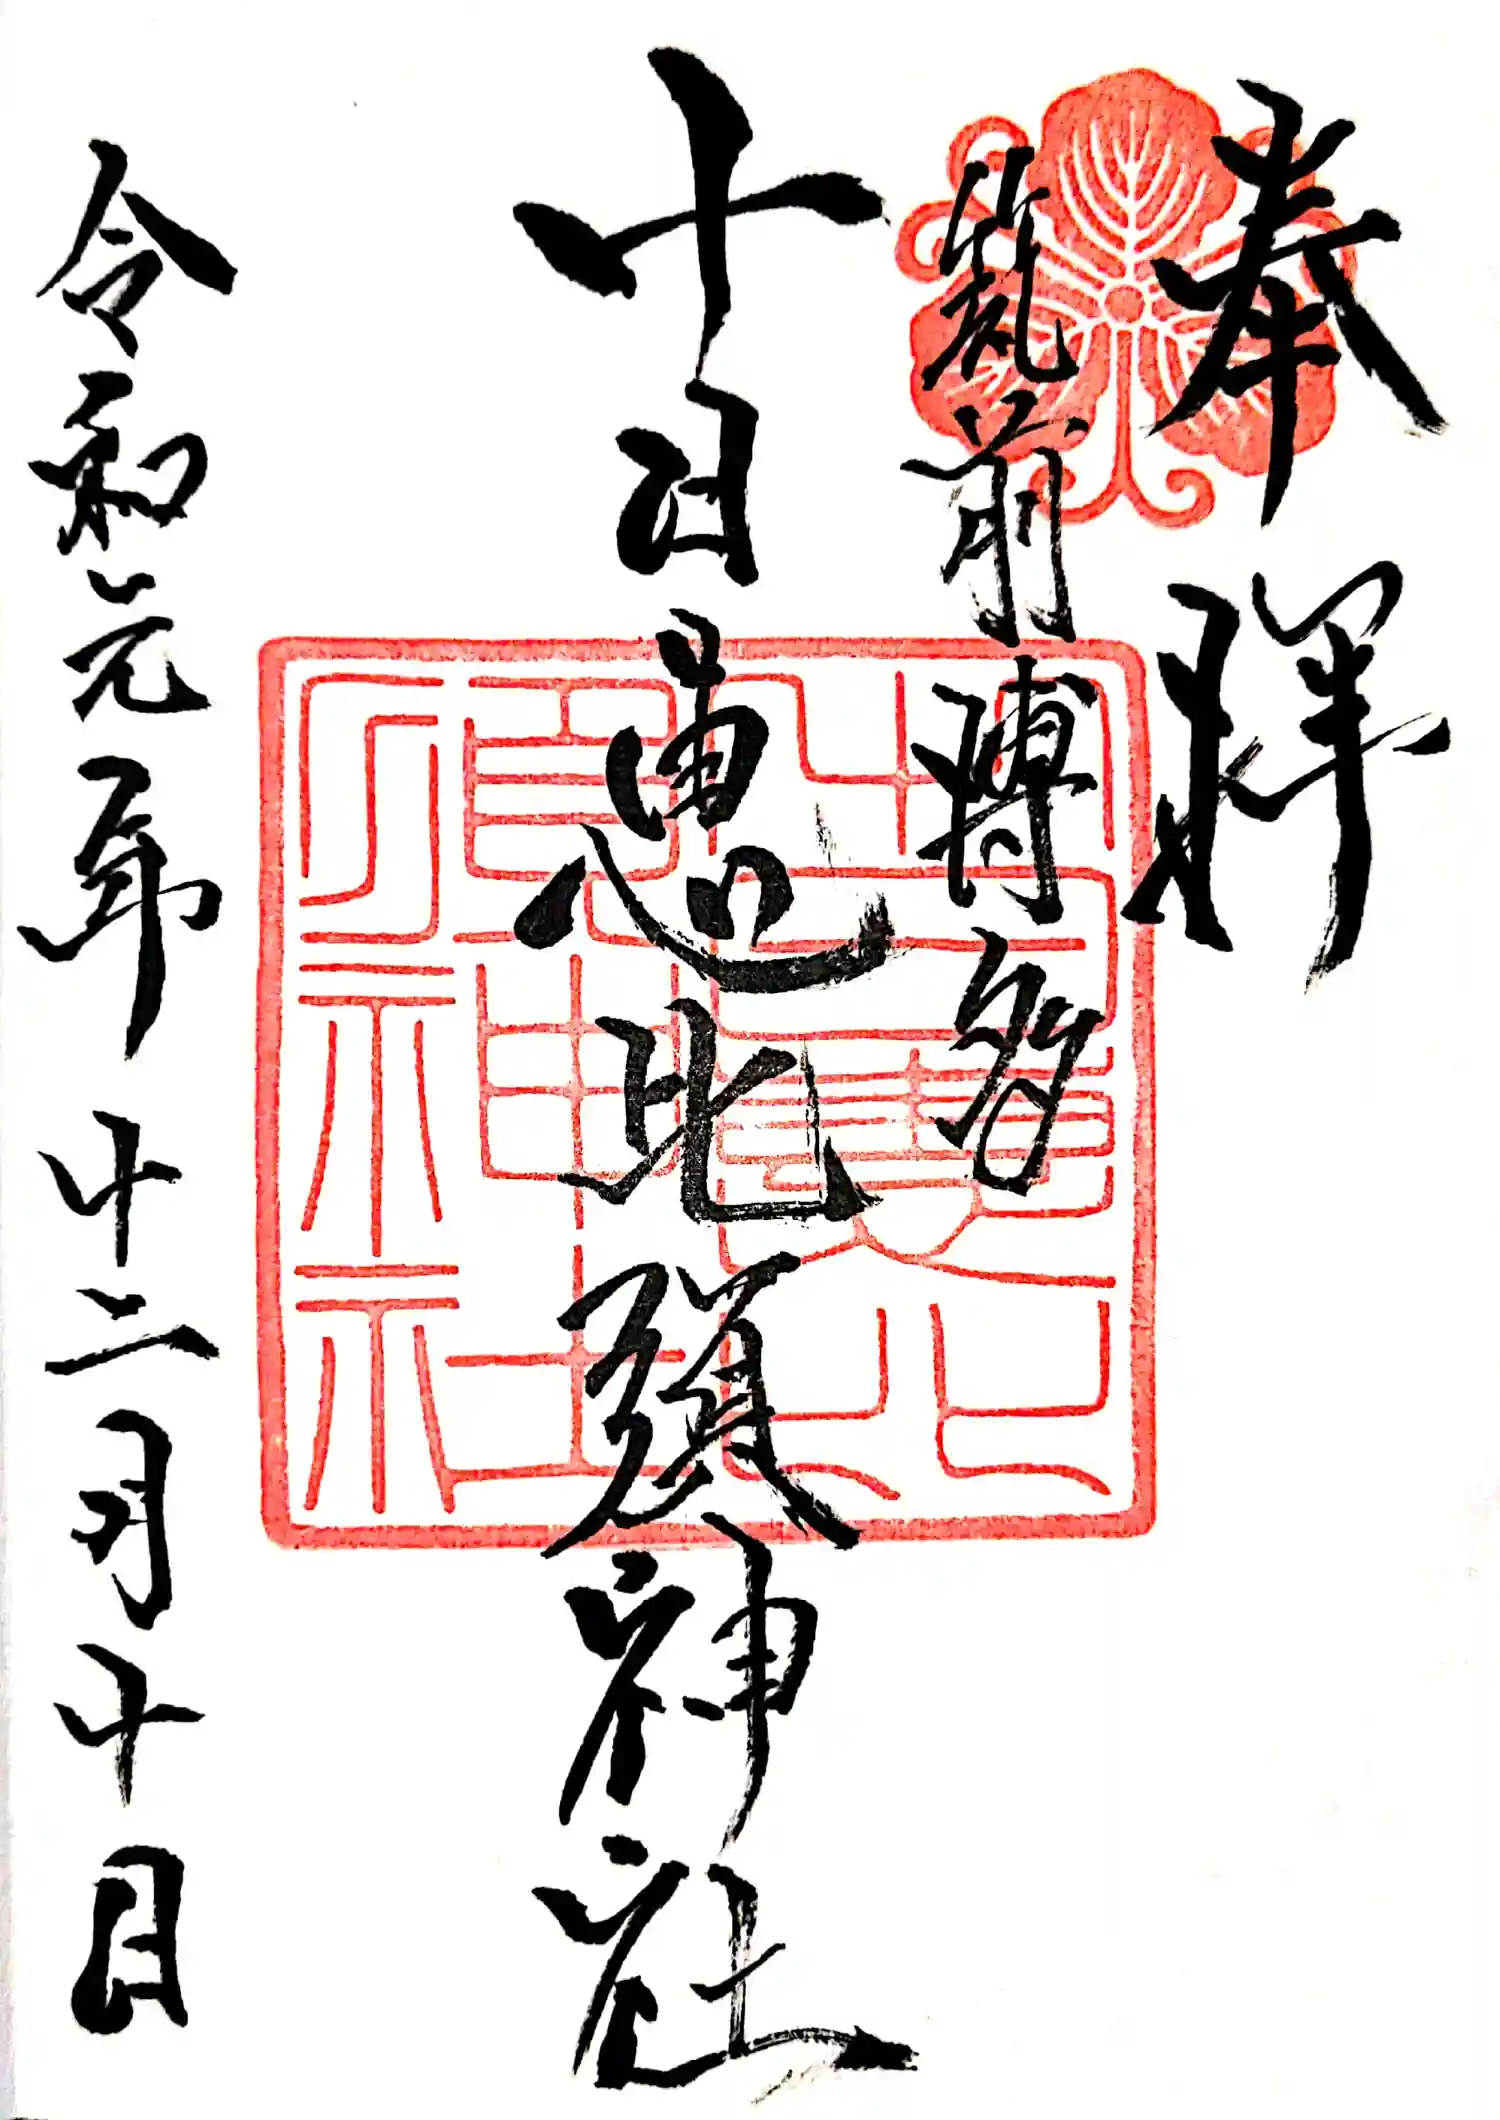 奉拝
筑前博多
十日恵比須神社
十日恵比須神社
令和元年十二月十日